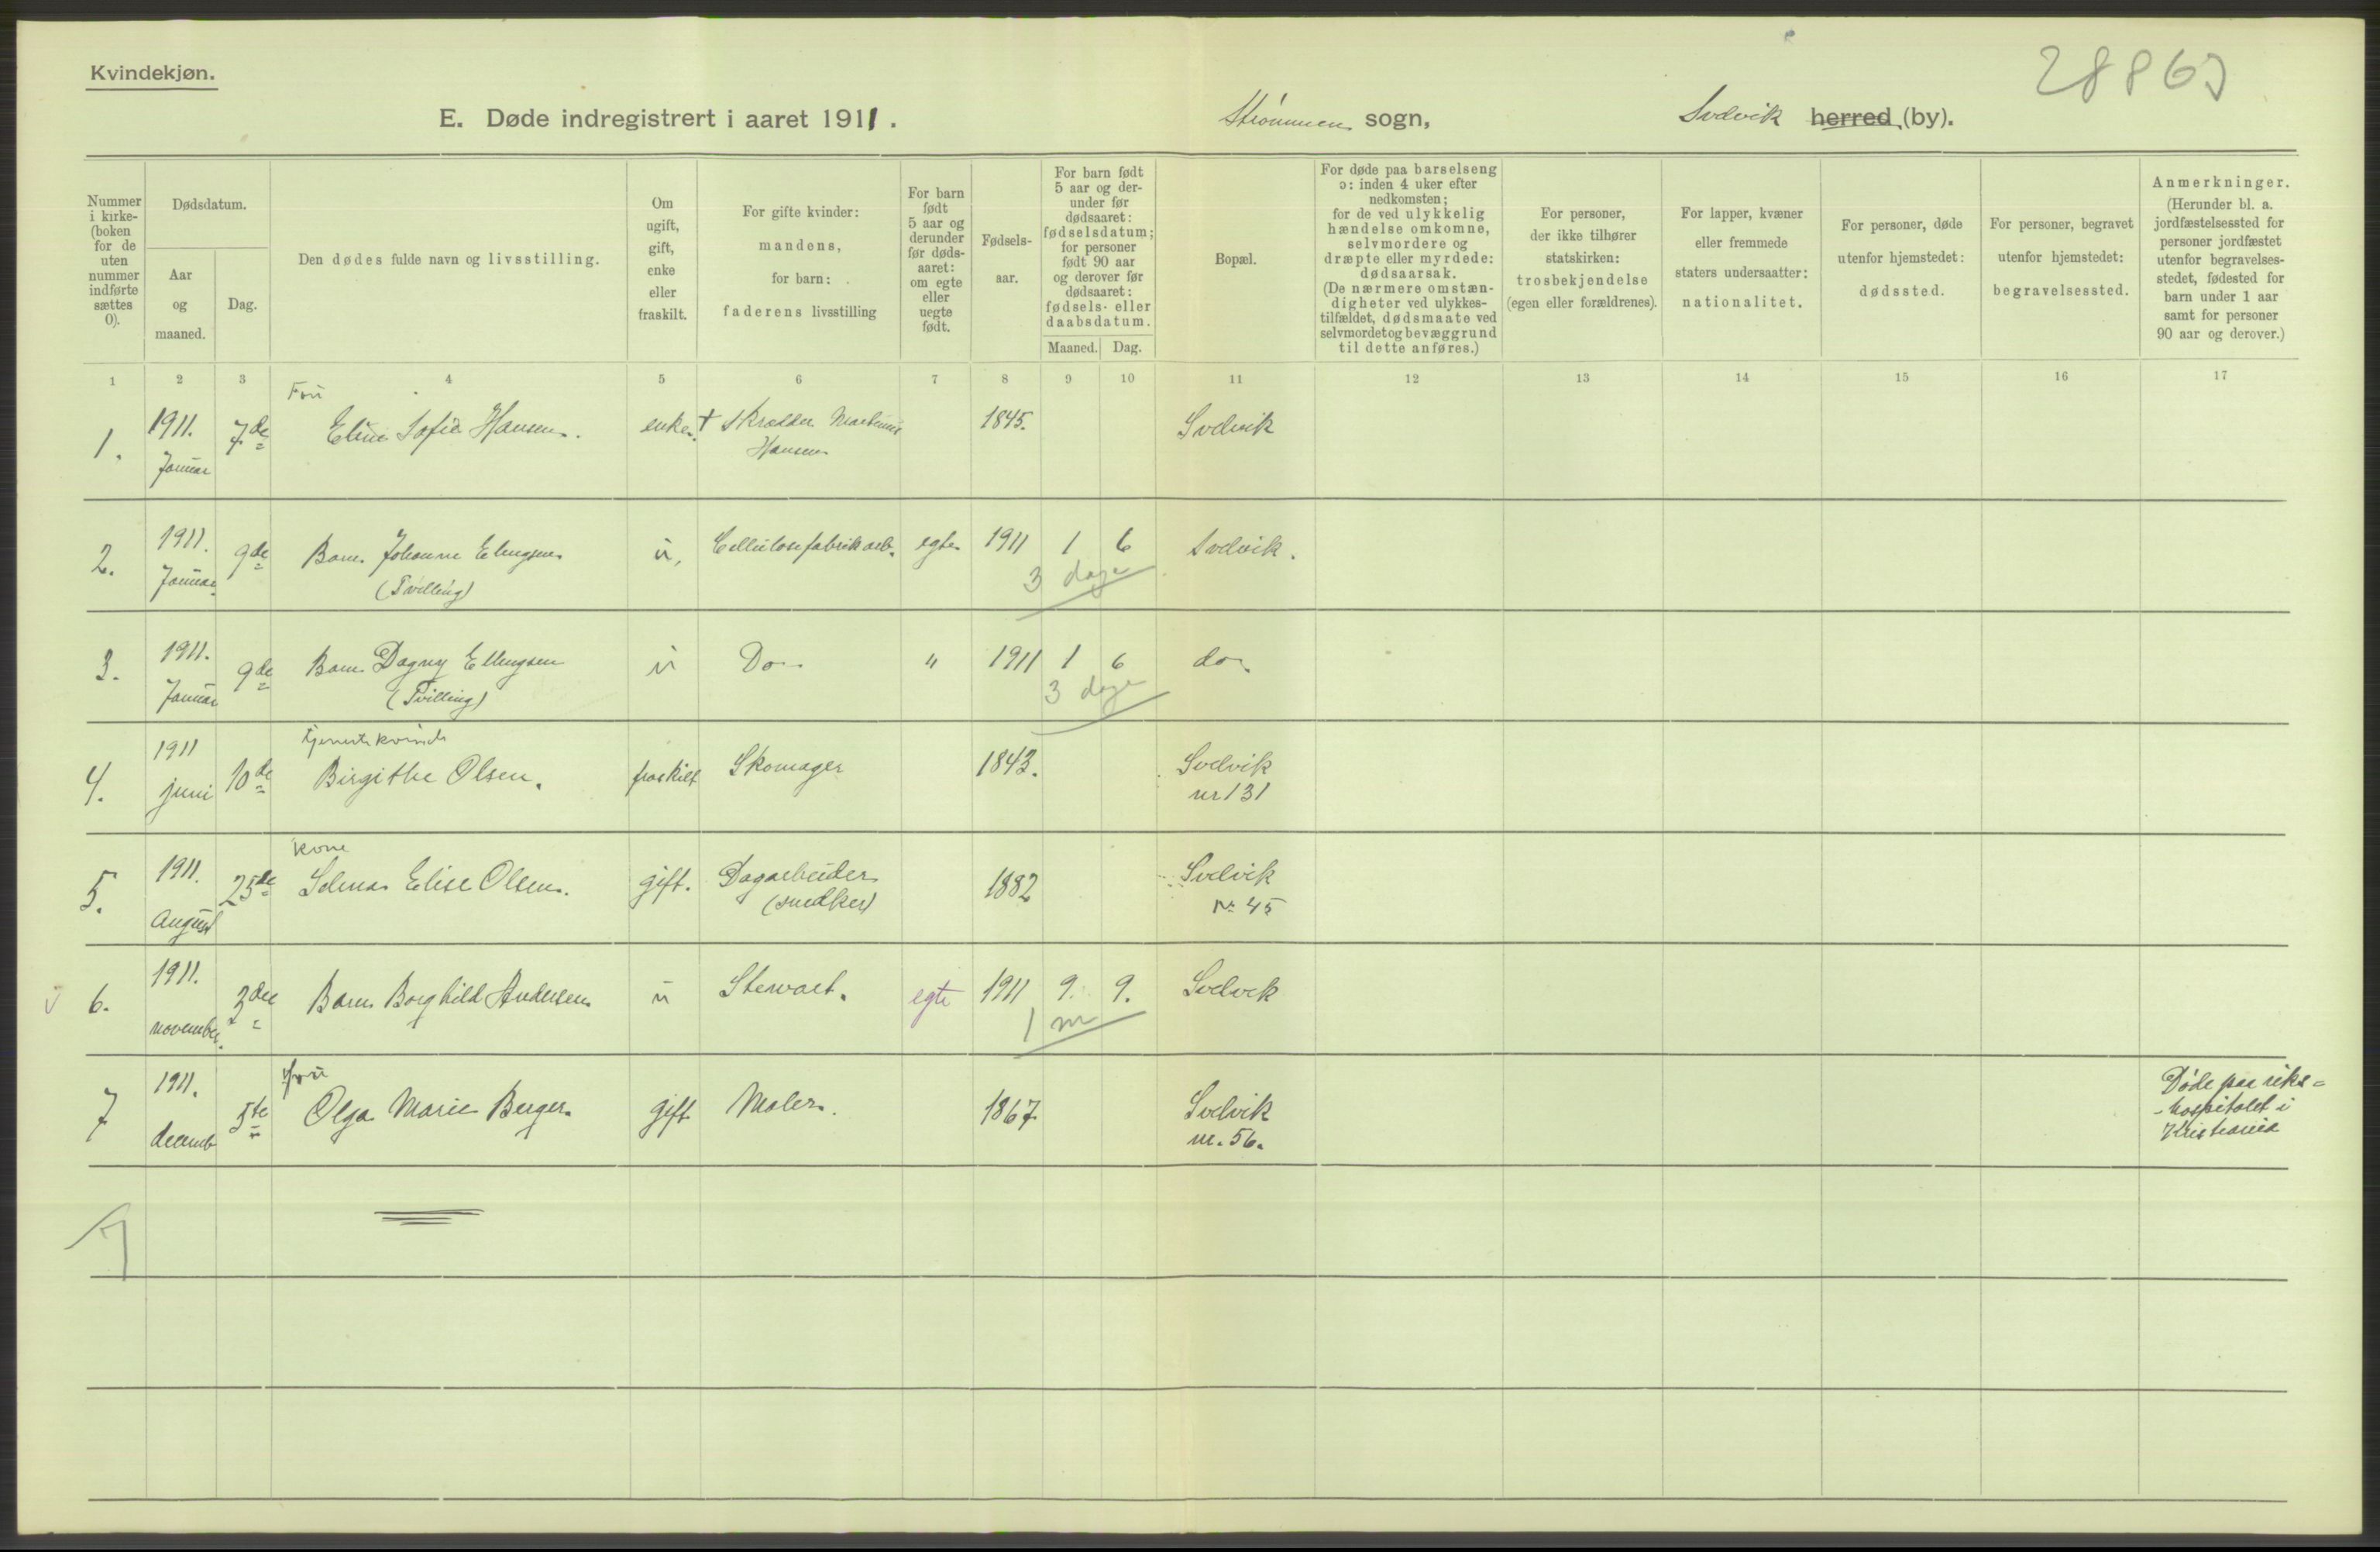 Kvindekjøn.
28863
E. Døde indregistrert i aaret 1911.
Strømmen sogn,
Svelvik herred (by).
Nummer i kirke-(boken for de uten nummer indførte sættes 0).
Dødsdatum.
Aar og maaned.
Dag.
Den dødes fulde navn og livsstilling.
Om ugift, gift, enke eller fraskilt.
For gifte kvinder: mandens, for barn: faderens livsstilling
For barn født 5 aar og derunder før døds-aaret: om egte eller uegte født.
Fødsels-aar.
For barn født 5 aar og der-under før dødsaaret: fødselsdatum; for personer født 90 aar og derover før dødsaaret: fødsels- eller daabsdatum.
Maaned.
Dag.
Bopæl.
For døde paa barselseng ɔ: inden 4 uker efter nedkomsten; for de ved ulykkelig hændelse omkomne, selvmordere og dræpte eller myrdede: dødsaarsak. (De nærmere omstæn-digheter ved ulykkes-tilfældet, dødsmaate ved selvmordet og bevæggrund til dette anføres.)
For personer, der ikke tilhører statskirken: trosbekjendelse (egen eller forældrenes).
For lapper, kvæner eller fremmede staters undersaatter: nationalitet.
For personer, døde utenfor hjemstedet: dødssted.
For personer, begravet utenfor hjemstedet: begravelsessted.
Anmerkninger. (Herunder bl. a. jordfæstelsessted for personer jordfæstet utenfor begravelses-stedet, fødested for barn under 1 aar samt for personer 90 aar og derover.)
1 2 3 4 5 6 7 8 9 10 11 12 13 14 15 16 17
Fru
1. 1911. Januar 7de Eline Sofie Hansen. enke. † Skrædder Martinius Hansen 1845. Svelvik
2. 1911. Januar 9de Barn Johanne Ellingsen (Tvilling) u, Cellulosefabrikarb. egte 1911 1 6 Svelvik.
3 dage
3. 1911. Januar 9de Barn Dagny Ellingsen (Tvilling) u Do. " 1911 1 6 do.
3 dage
tjenestekvinde
4. 1911 juni 10de Birgithe Olsen. fraskilt Skomager 1843. Svelvik nr 131
kone
5. 1911. August 25de Selma Elise Olsen. gift. Dagarbeider (snedker) 1882 Svelvik nr 45
6. 1911. november. 3die Barn Borghild Andersen u Stewart. egte 1911 9. 9. Svelvik
1 m
fru
7 1911. decemb 5te Olga Marie Berger. gift Maler. 1867 Svelvik nr. 56.
Døde paa riks=
-hospitalet i
Kristiania
7